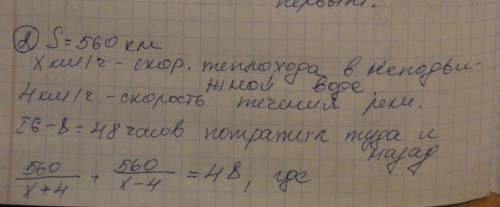 первым.
② S = 560 км
х км/ч - скор. теплохода в неподви-
жной воде
4 км/ч - скорость течения реки.
56-8 = 48 часов потратил туда и
назад
560/х+4 + 560/х-4 = 48, где